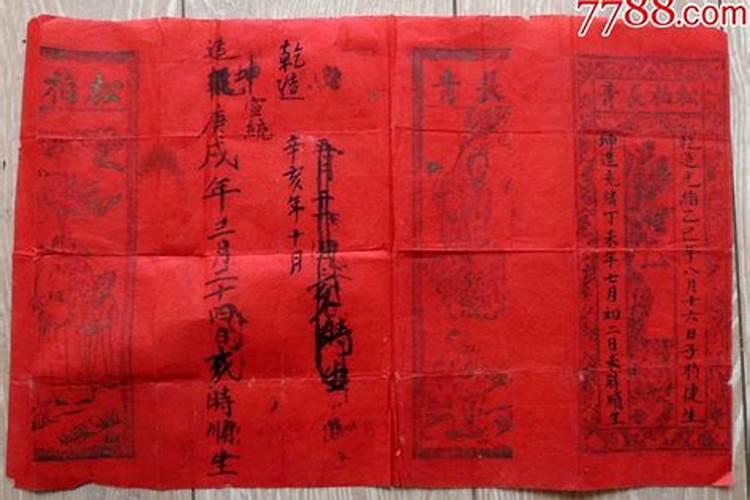 7788.com
松柏長青
乾造光緒乙巳年八月十六日子時健生
坤造光緒丁未年七月初二日未時順生
長青
時生
乾造
辛亥年十月
宣統
坤
造
庚戌年三月二十四日
時順生
松柏